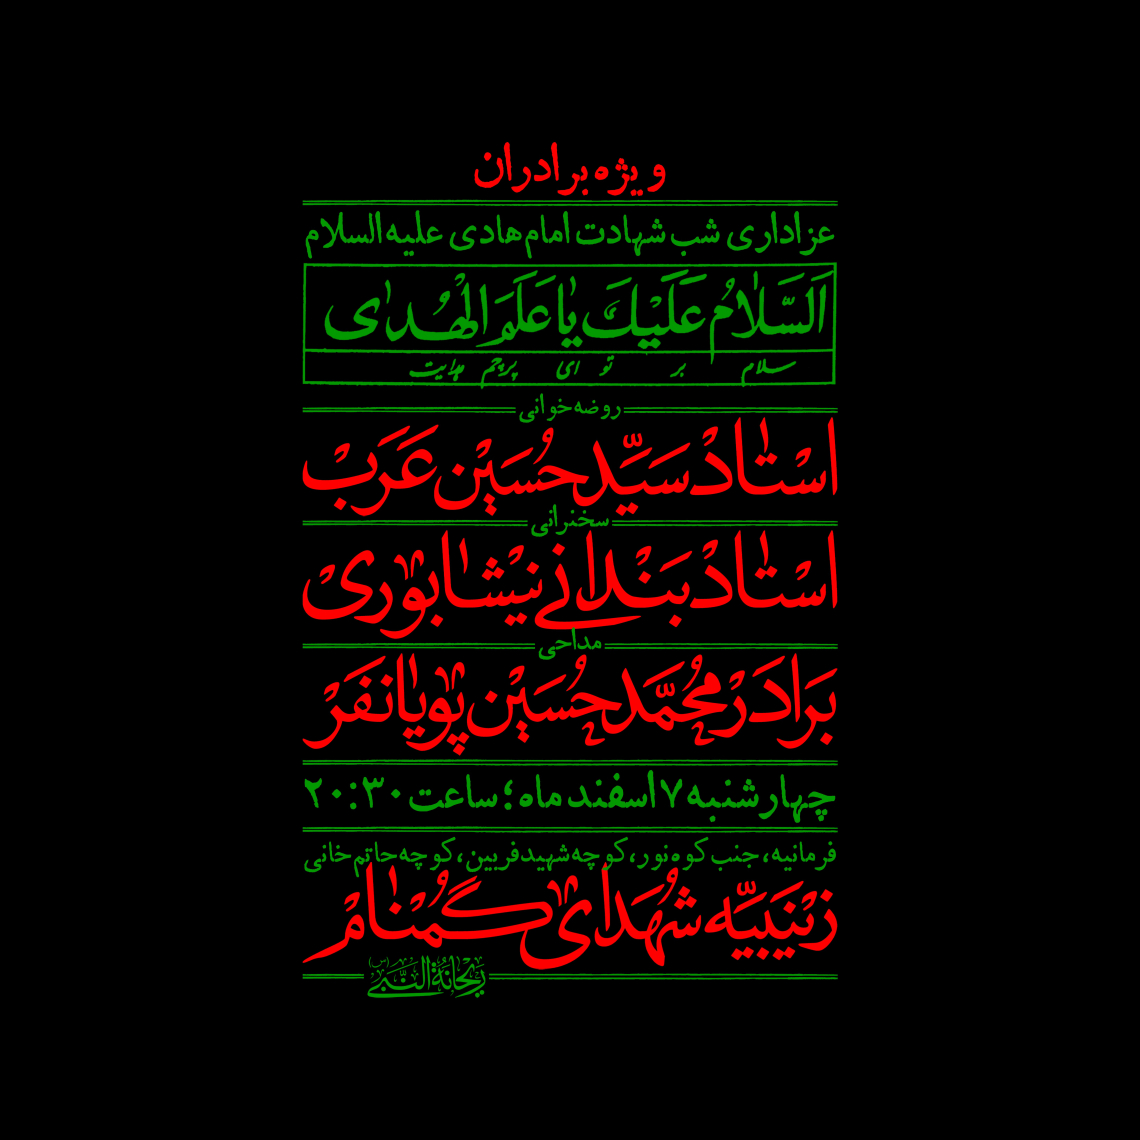 ویژه برادران
عزاداری شب شهادت امام هادی علیه السلام
اَلسَّلامُ عَلَیْكَ یا عَلَمَ الْهُدیٰ
سلام بر تو ای پرچم هدایت
روضه خوانی
استاد سیّد حسین عرب
سخنرانی
استاد بندانی نیشابوری
مداحی
برادر محمّد حسین پویانفر
چهارشنبه ۷ اسفند ماه؛ ساعت ۲۰:۳۰
فرمانیه، جنب کوه نور، کوچه شهید فربین، کوچه حاتم خانی
زینبیّه شهدای گمنام
ریحانة النبی (س)